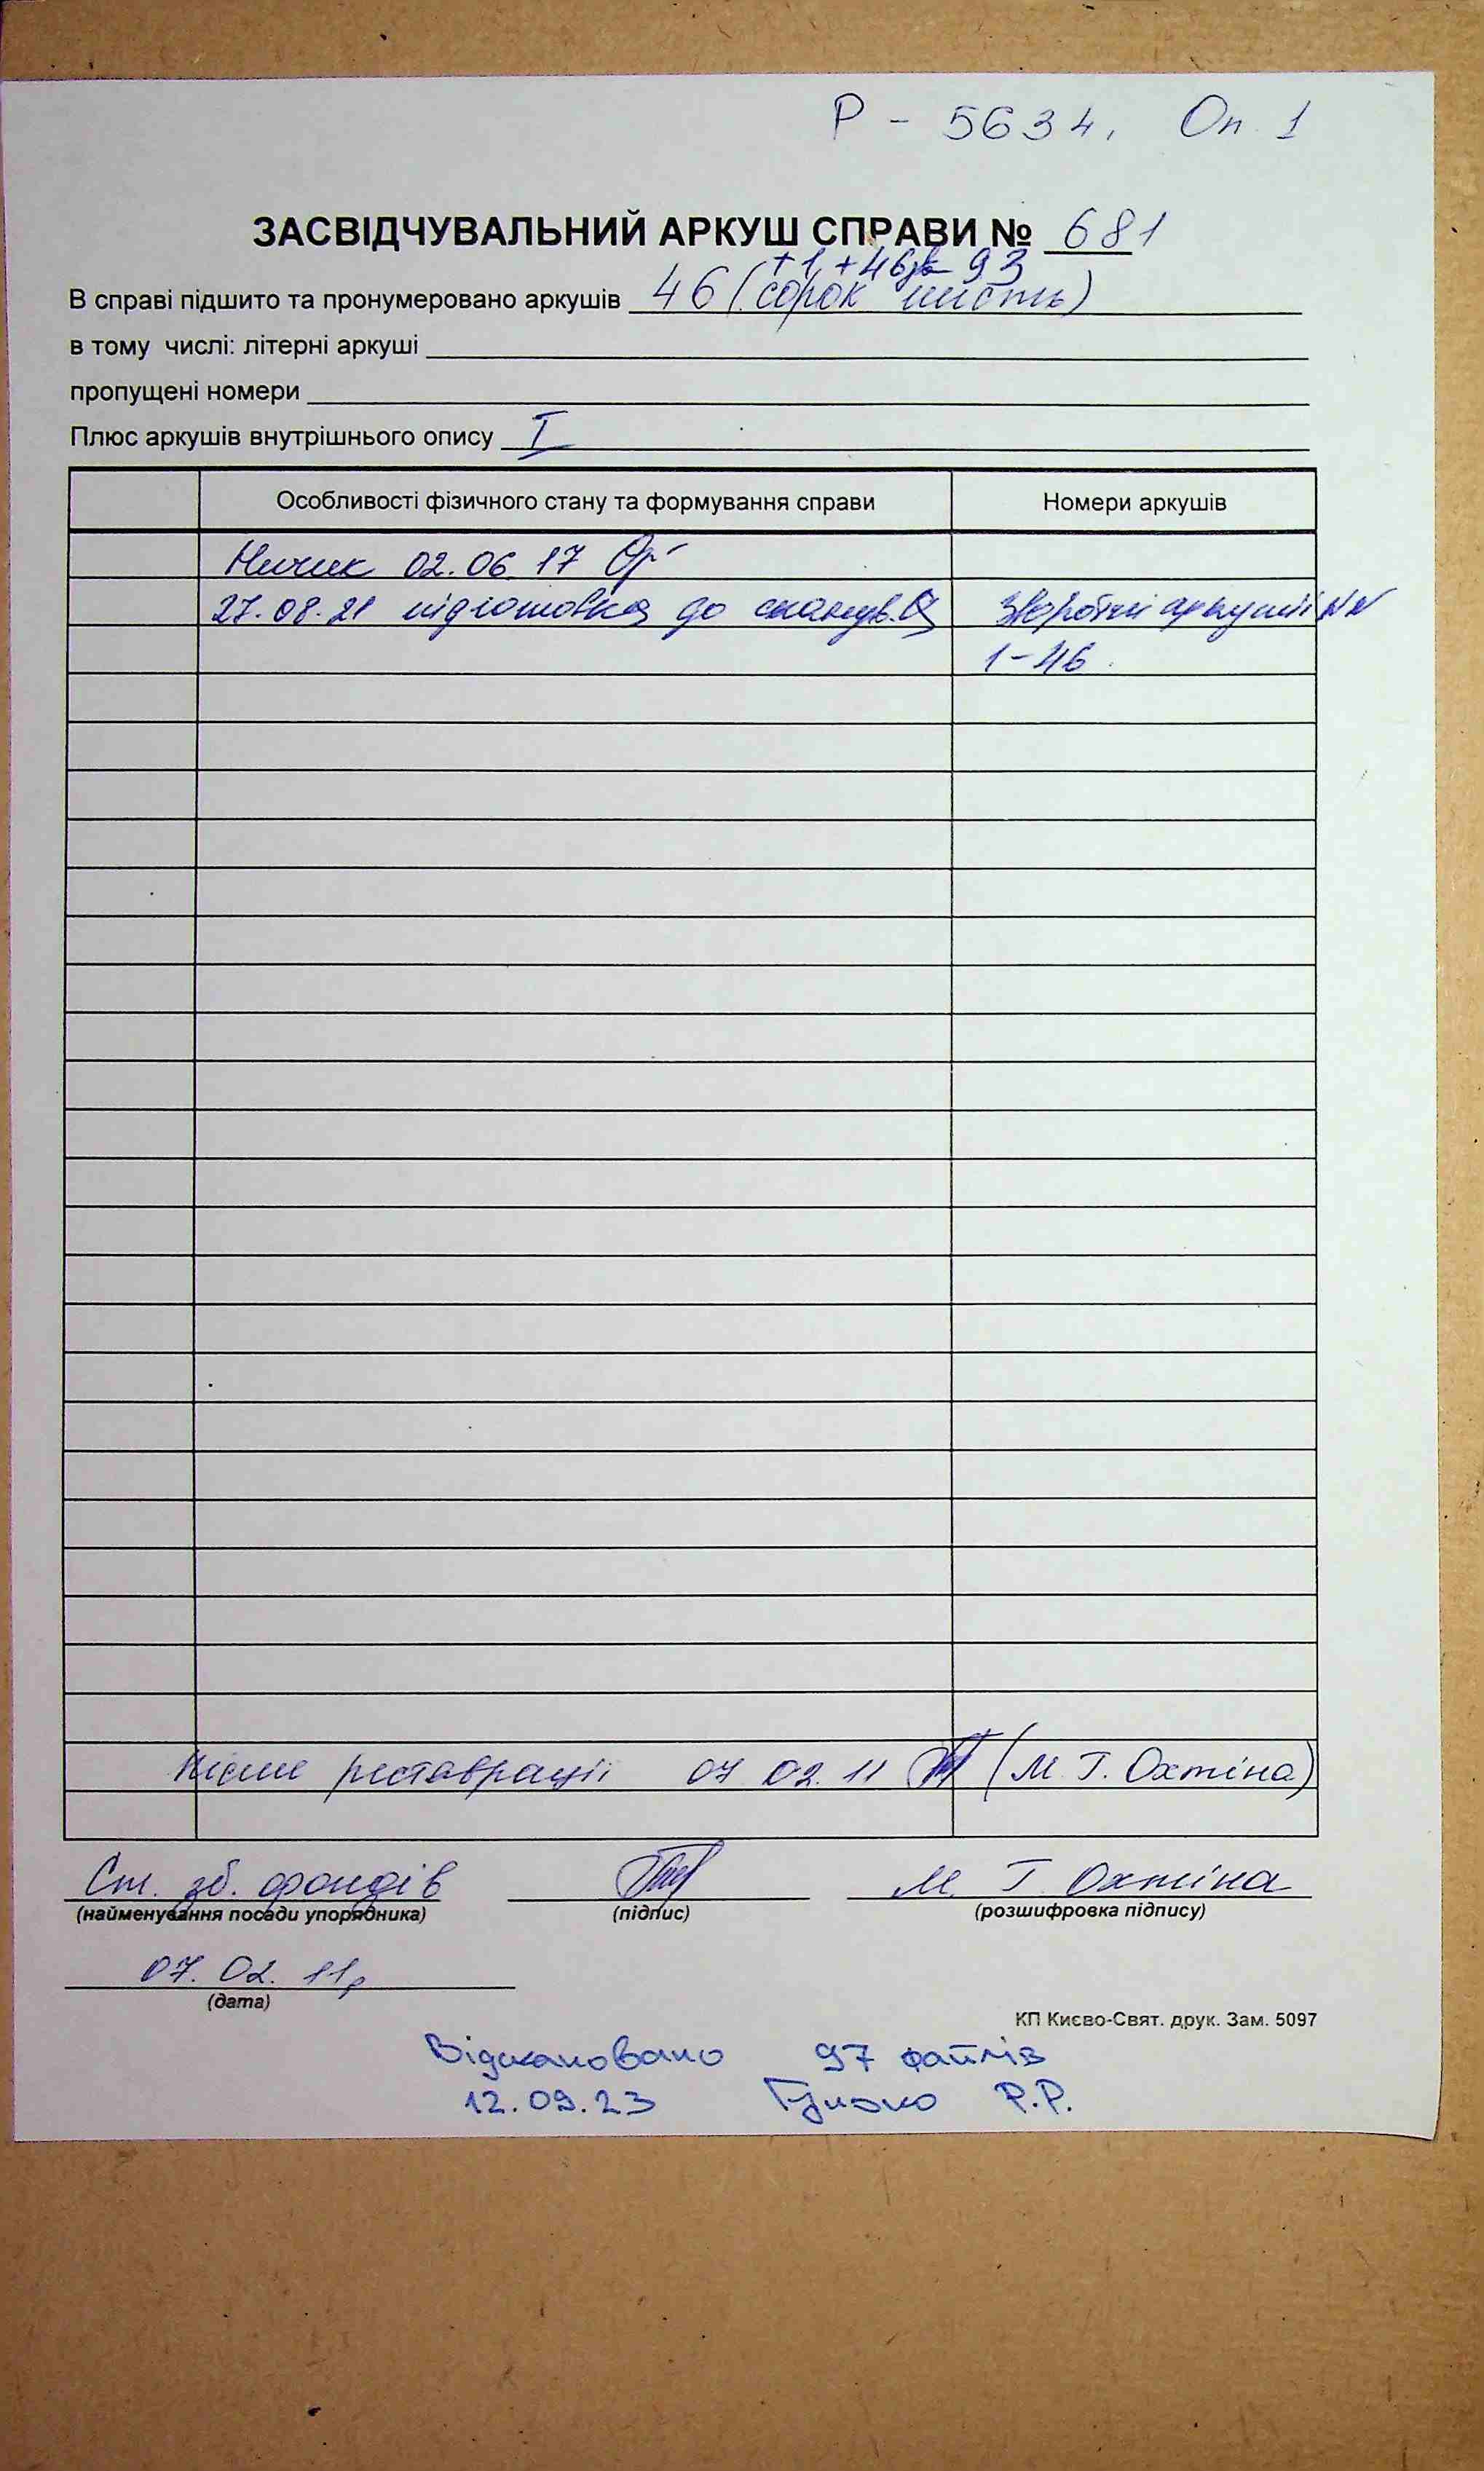 Р - 5634, Оп 1
ЗАСВІДЧУВАЛЬНИЙ АРКУШ СПРАВИ № 681
+1 +46 зв 93
В справі підшито та пронумеровано аркушів 46 (сорок шість)
в тому числі: літерні аркуші
пропущені номери
Плюс аркушів внутрішнього опису I
Особливості фізичного стану та формування справи Номери аркушів
02.06.17
27.08.21 підготовка до сканув. Зворотні аркуші NN
1-46
Після реставрації 07 02. 11 (М Г. Охтіна)
Ст. зб. фондів М Г Охтіна
(найменування посади упорядника) (підпис) (розшифровка підпису)
07. 02. 11р
(дата)
КП Києво-Свят. друк. Зам. 5097
Відскановано 97 файлів
12.09.23 Р.Р.